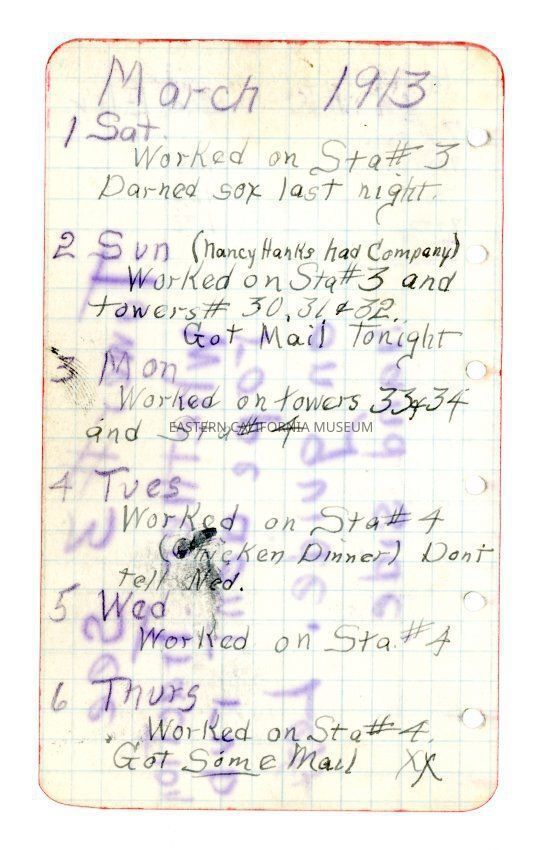 March 1913
1 Sat.
Worked on Sta# 3
Darned sox last night.
2 Sun (Nancy Hanks had Company)
Worked on Sta#3 and
towers# 30, 31 & 32.
Got Mail Tonight
3 Mon
Worked on towers 33&34
and Sta# 4
EASTERN CALIFORNIA MUSEUM
4 Tues
Worked on Sta# 4
(Chicken Dinner) Dont
tell Ned.
5 Wed
Worked on Sta.#4
6 Thurs
Worked on Sta# 4.
Got Some Mail XX